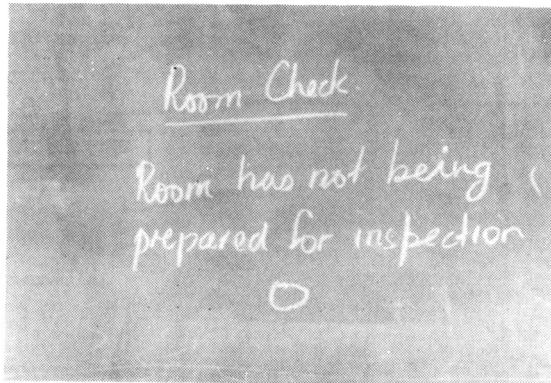 Room Check.
Room has not being
prepared for inspection
0